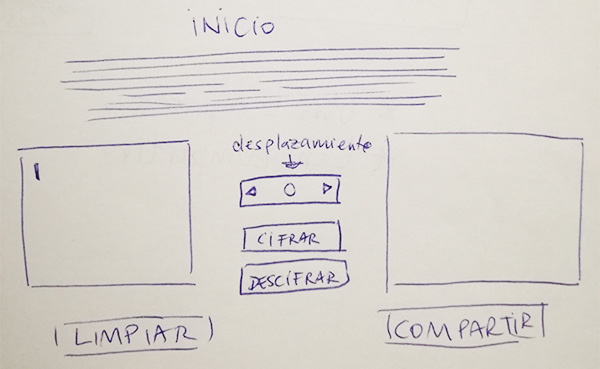 INICIO
desplazamiento
0
CIFRAR
DESCIFRAR
LIMPIAR
COMPARTIR